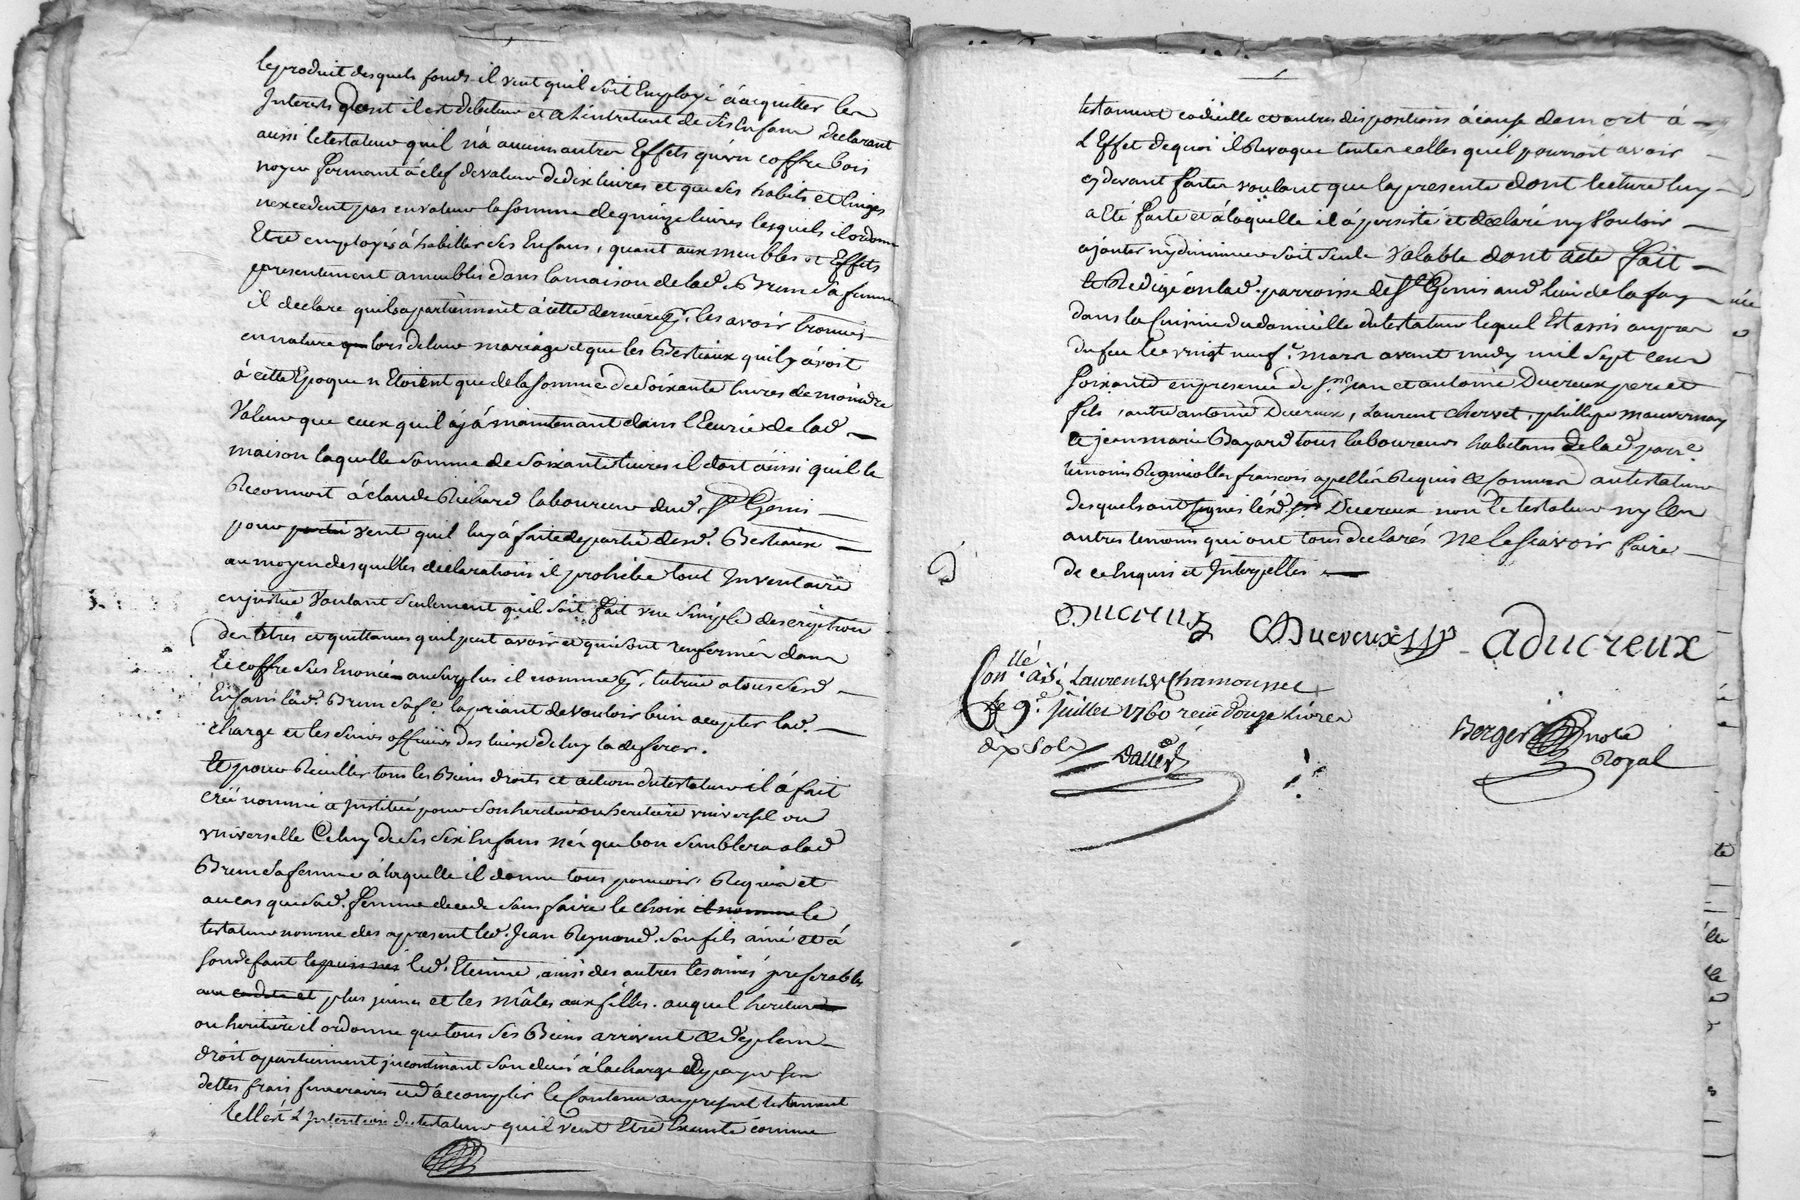 le produit desquels fonds il veut quil soit Employé à acquitter les
Interets dont il est debiteur et a Lentretient de ses Enfans Declarant
aussi le testateur quil n'à aucuns autres Effets qu'un coffre bois
noyer fermant à clef de valeur de dix livres et que ses habits et linges
nexcedent pas en valeur la somme de quinze livres lesquels il ordonne
Etre employés à habiller ses Enfans, quant aux meubles et Effets
presentement ameublés dans la maison de lad. Brun sa femme
il declare quils apartiennent à cette derniere pr. les avoir trouvés
en nature lors de leur mariage et que les Bestiaux quil y avoit
à cette Epoque n'Etoient que de la somme de soixante livres de moindre
Valeur que ceux quil a jà maintenant dans l'Ecurie de lad.
maison laquelle somme de soixante livres il doit ainsi quil le
Reconnoit à claude Richard laboureur dud. St Genis
pour vente quil luy à faite de partie desd. Bestiaux
au moyen desquelles declarations il prohibe tout Inventaire
en justice Voulant seulement quil soit fait une simple description
des titres et quittances quil peut avoir et qui sont renfermés dans
le coffre sus Enoncé au surplus il nomme pr. tutrice a tous sesd.
Enfans lad. Brun sa fe. la priant de vouloir bien accepter lad.
charge et les sieurs officiers des lieux de luy la deferer.
Et pour Recuillir tous les Biens droits et actions du testateur il à fait
créé nommé et Institué pour son heritier ou heritiere universel ou
universelle Celuy de ses six Enfans nés que bon semblera a lad.
Brun sa femme à laquelle il donne tous pouvoirs Requis et
au cas que sad. femme decede sans faire le choix il nomme le
testateur nomme des apresent led. Jean Reymond son fils ainé et à
son defaut led. Etienne, ainsi des autres les ainés preferables
aux cadets et plus jeunes et les mâles aux filles. auquel heritier
ou heritiere il ordonne que tous ses Biens arrivent et de plein
droit apartiennent incontinant son decès à la charge de payer ses
dettes frais funeraires et d'accomplir le Contenu au present testament
telle est L'Intention du testateur qu'il veut Etre Executé comme
testament codicille et autres dispositions à cause de mort à
L'Effet de quoi il Revoque toutes celles quil pourroit avoir
cy devant faites voulant que la presente dont lecture luy
a Eté faite et à laquelle il à persisté et declaré ny Vouloir
ajouter ny diminuer soit seule Valable dont acte fait
et Redigé en lad. parroisse de St Genis aud. lieu de la fay
dans la Cuisine du domicille du testateur lequel Est assis aupres
du feu le vingt neuf.e mars avant midy mil sept cens
soixante en presence de Jean et antoine Ducreux pere et
fils, autre antoine Ducreux, Laurent chervet, phillipe mauvernay
et jean marie Bayard tous laboureurs habitans de lad. parr.e
temoins Regnicolles francois appellés Requis et sommés au testateur
desquels ont signés lesd. Ducreux non le testateur ny les
autres temoins qui ont tous declarés ne le scavoir faire
de ce Enquis et Interpellés
Ducreux Ducreux aducreux
Conllé à St Laurent de Chamousset
le 9e. juillet 1760 recu douze livres
dix sols
Berger note
Royal